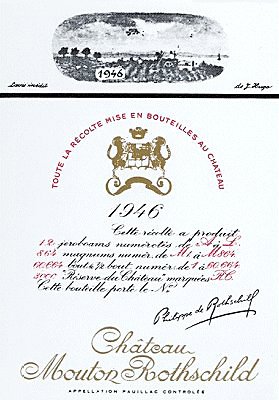 1946
Lavis inédit de J. Hugo
TOUTE LA RÉCOLTE MISE EN BOUTEILLES AU CHÂTEAU
1946
Cette récolte a produit
12 jeroboams numérotés de A à L
864 magnums numér. de M1 à M864
et 1/2 bout. numér. de 1 à
"Réserve du Château" marquées R.C.
Cette bouteille porte le No
Philippe de Rothschild
Château
Mouton Rothschild
APPELLATION PAUILLAC CONTROLÉE